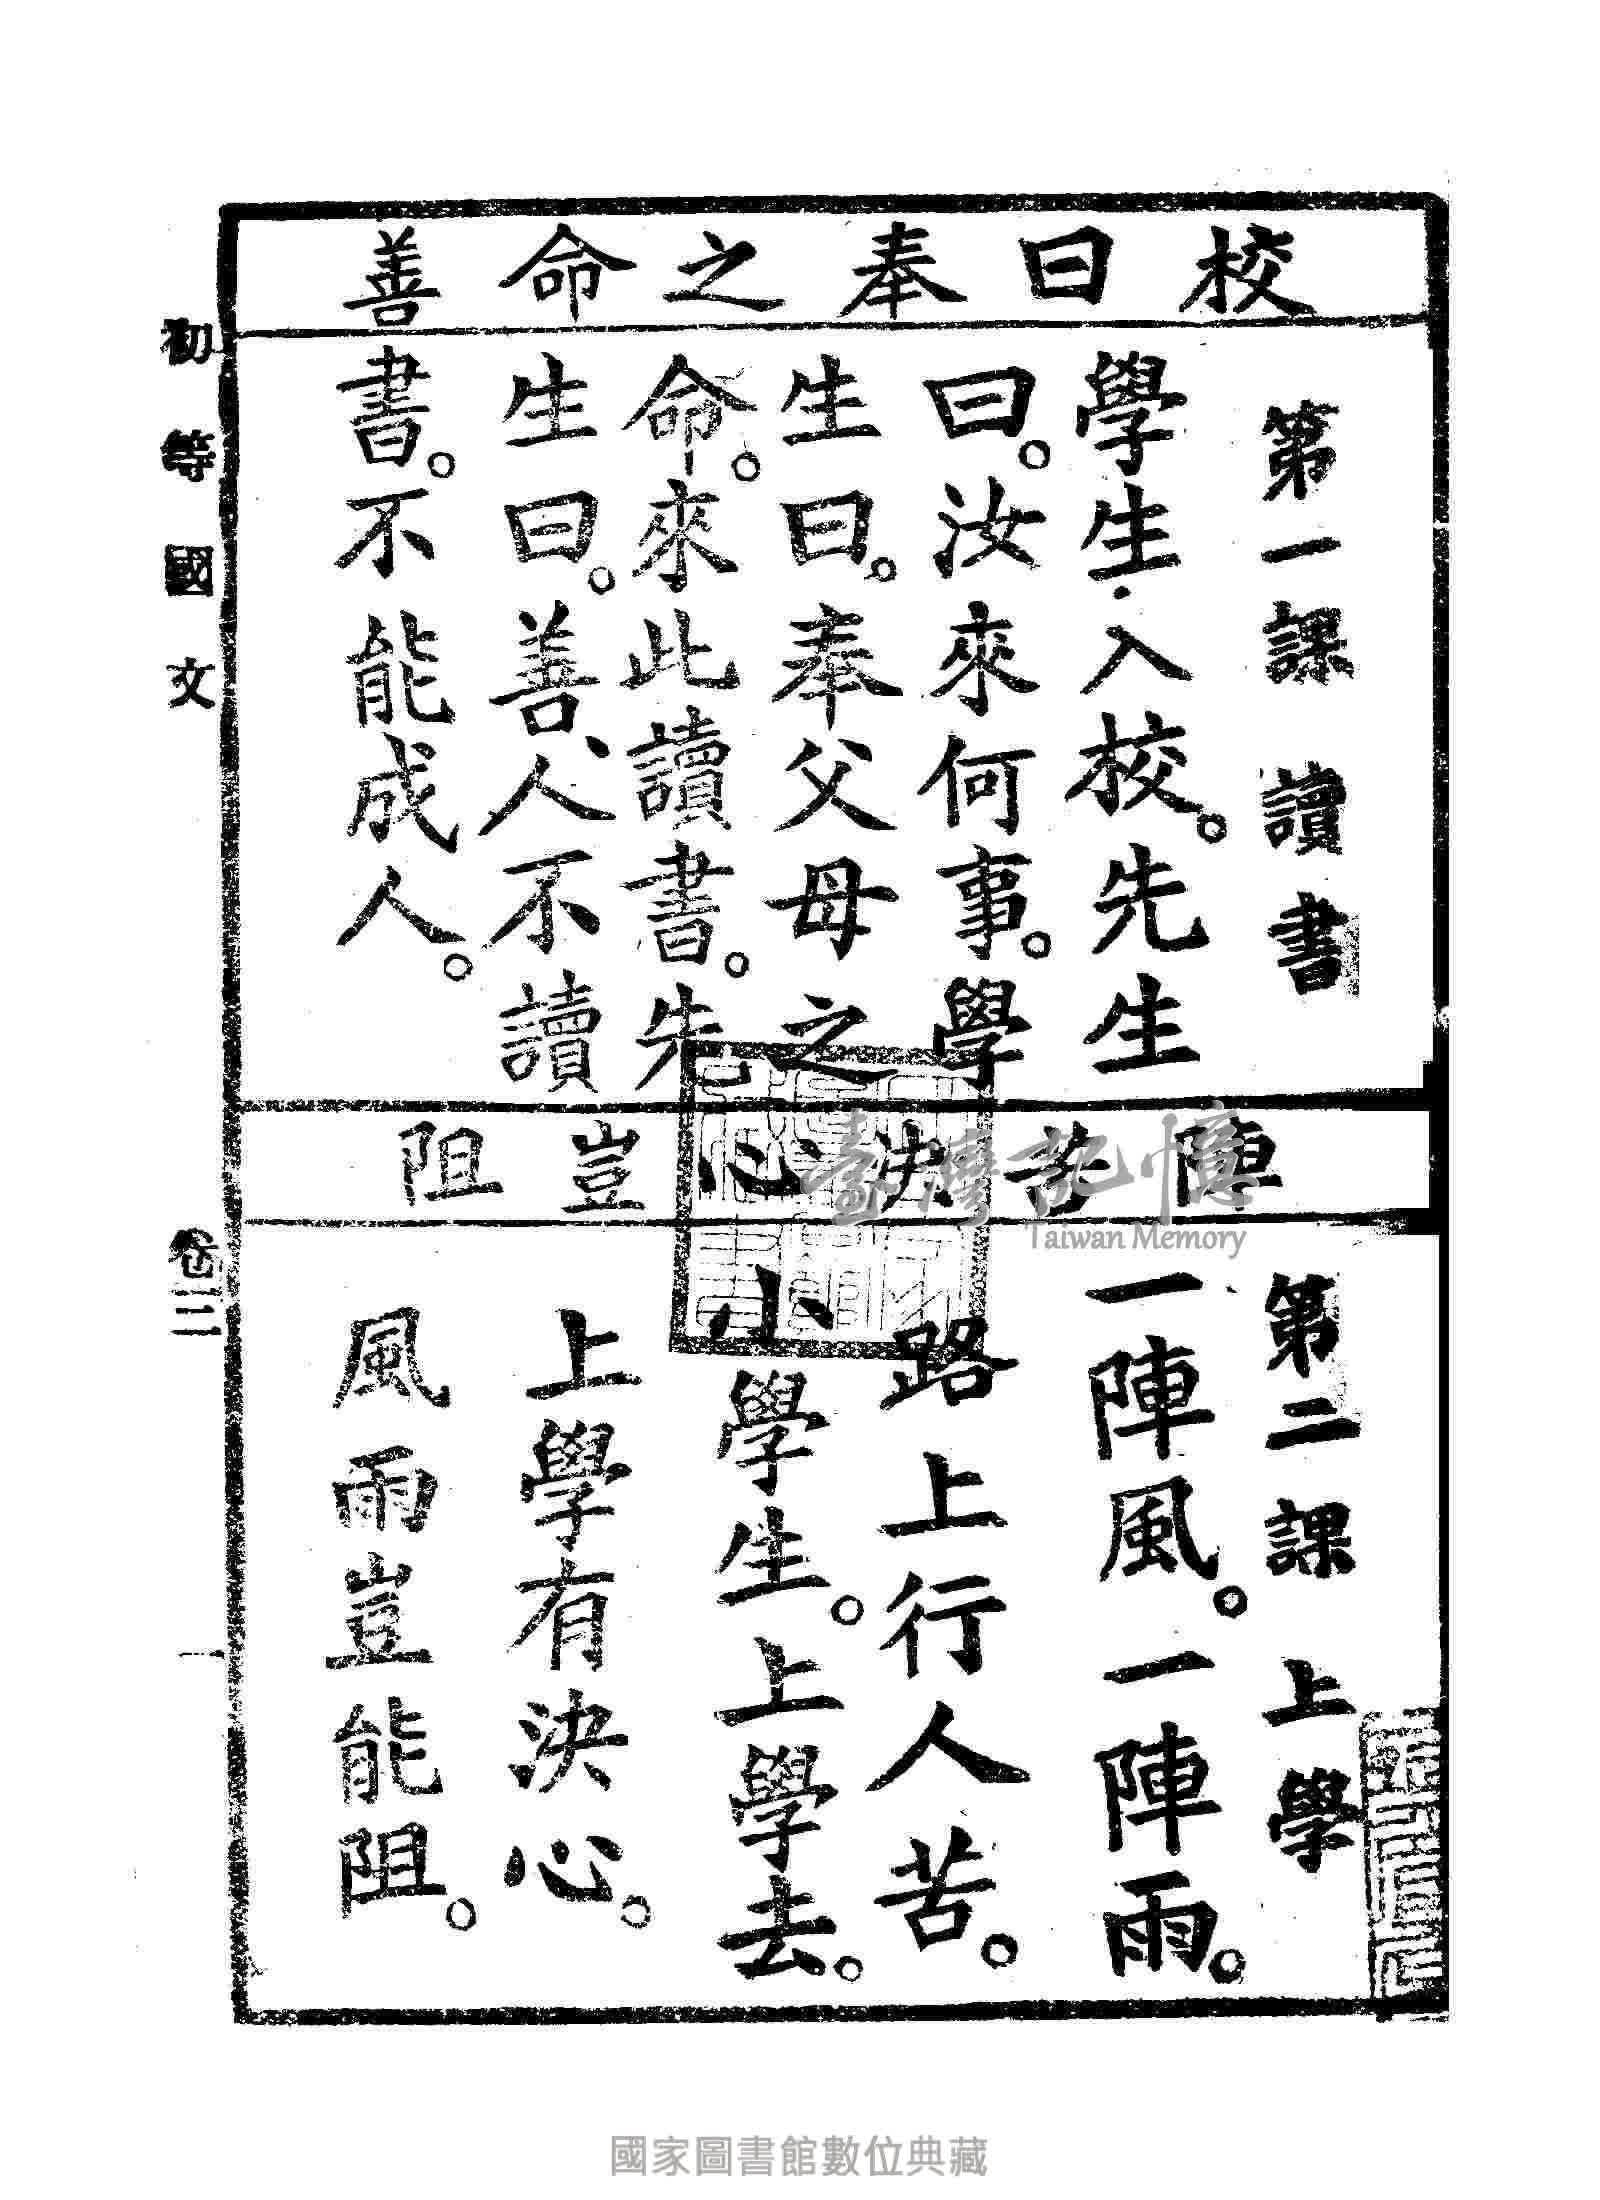 校曰奉之命善
第一課 讀書
學生入校。先生
曰。汝來何事。學
生曰。奉父母之
命。來此讀書。先
生曰。善、人不讀
書。不能成人。
陣苦決心豈阻
第二課 上學
一陣風。一陣雨。
路上行人苦。
小學生。上學去。
上學有決心。
風雨豈能阻。
初等國文
卷二
一
臺灣記憶
Taiwan Memory
國家圖書館數位典藏